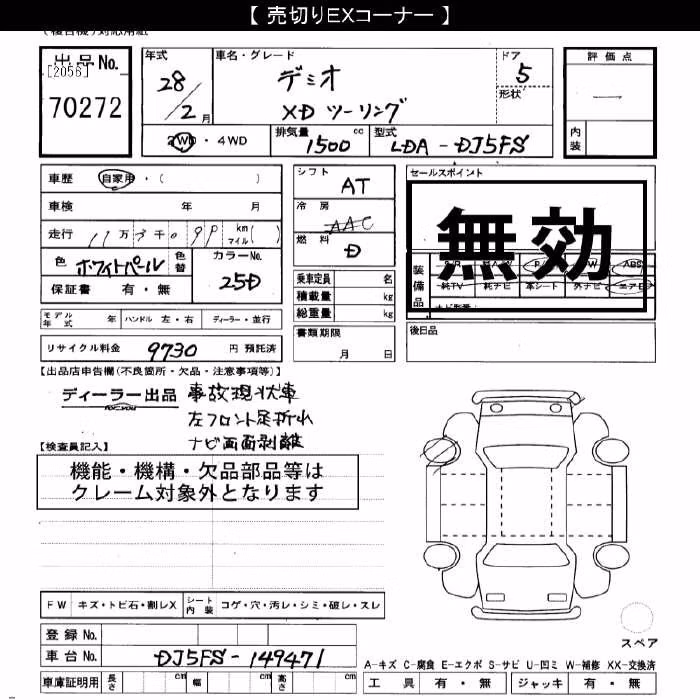 【 売切りEXコーナー 】
出品No.
[2056]
70272
年式
28/2月
車名・グレード
デミオ
XD ツーリング
ドア
5
形状
評価点
―
内装
2WD・4WD
排気量
1500 cc
型式
LDA-DJ5FS
車歴 自家用・( )
車検 年 月
走行 11万 千 99 km マイル( )
色 ホワイトパール 色替
カラーNo.
25D
保証書 有・無
シフト
AT
冷房
AAC
燃料
D
乗車定員 名
積載量 kg
総重量 kg
セールスポイント
無効
装備品
S/R P/S ABS
純TV 純ナビ 革シート 外ナビ エアB
モデル年式 年 ハンドル 左・右 ディーラー・並行
書類期限
月 日
後日品
リサイクル料金 9730 円 預託済
【出品店申告欄(不良箇所・欠品・注意事項等)】
ディーラー出品 事故現状車
左フロント足折れ
ナビ画面剥離
【検査員記入】
機能・機構・欠品部品等は
クレーム対象外となります
FW キズ・トビ石・割レX シート内装 コゲ・穴・汚レ・シミ・破レ・スレ
登録No.
車台No. DJ5FS-149471
車庫証明用 長さ cm 幅 cm 高さ cm
スペア
A-キズ C-腐食 E-エクボ S-サビ U-凹ミ W-補修 XX-交換済
工具 有・無 ジャッキ 有・無